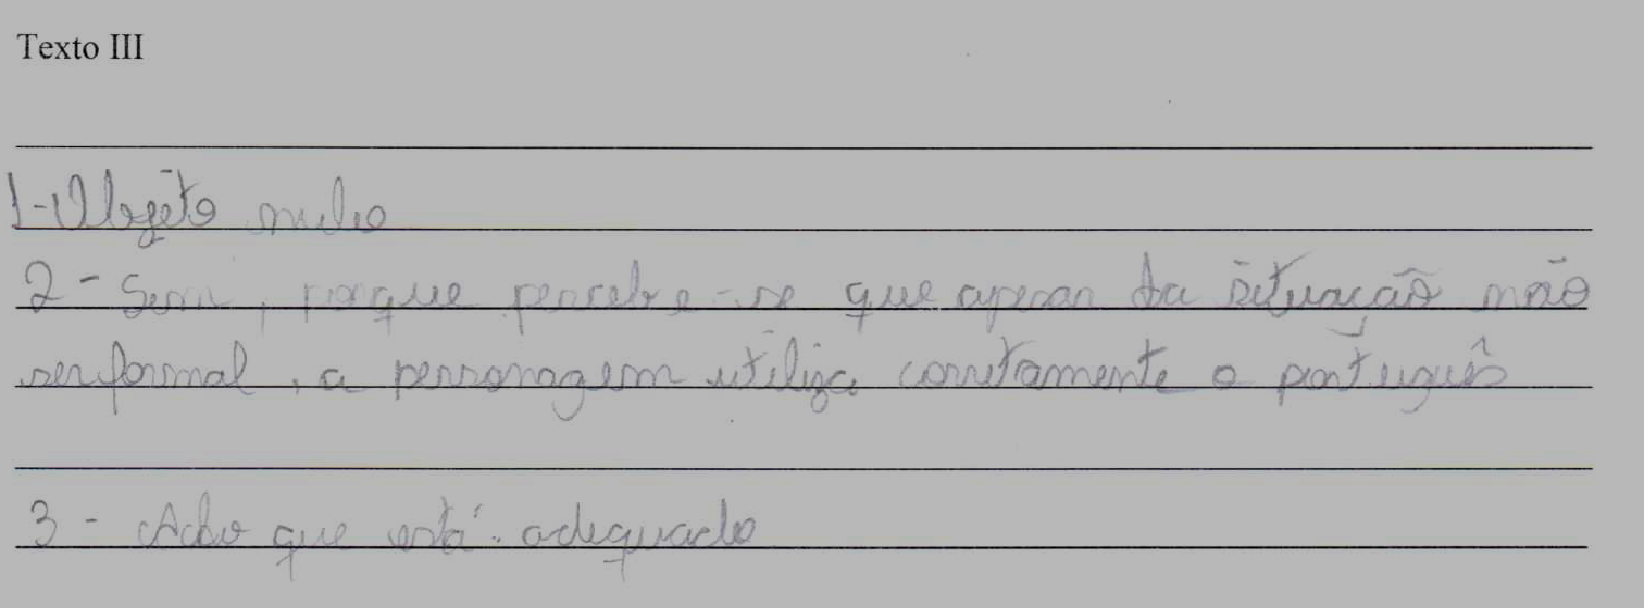 Texto III
1- Objeto nulo
2 - Sim, porque percebe-se que apesar da situação não
ser formal, a personagem utiliza corretamente o português
3 - Acho que está adequado